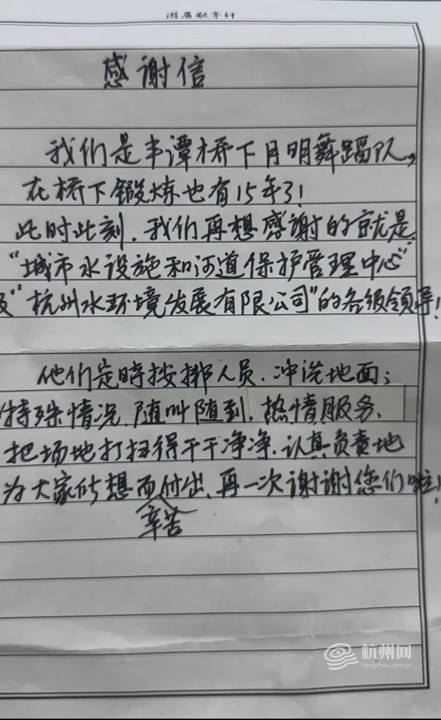 感谢信
我们是丰谭桥下月明舞蹈队，
在桥下锻炼也有15年了!
此时此刻，我们再想感谢的就是
"城市水设施和河道保护管理中心"
及"杭州水环境发展有限公司"的各级领导!
他们定時按排人员、冲洗地面;
特殊情况，随叫随到、热情服务、
把场地打扫得干干净净、认真负责地
为大家所想而付出、再一次谢谢您们啦!
辛苦
杭州网
hangzhou.com.cn